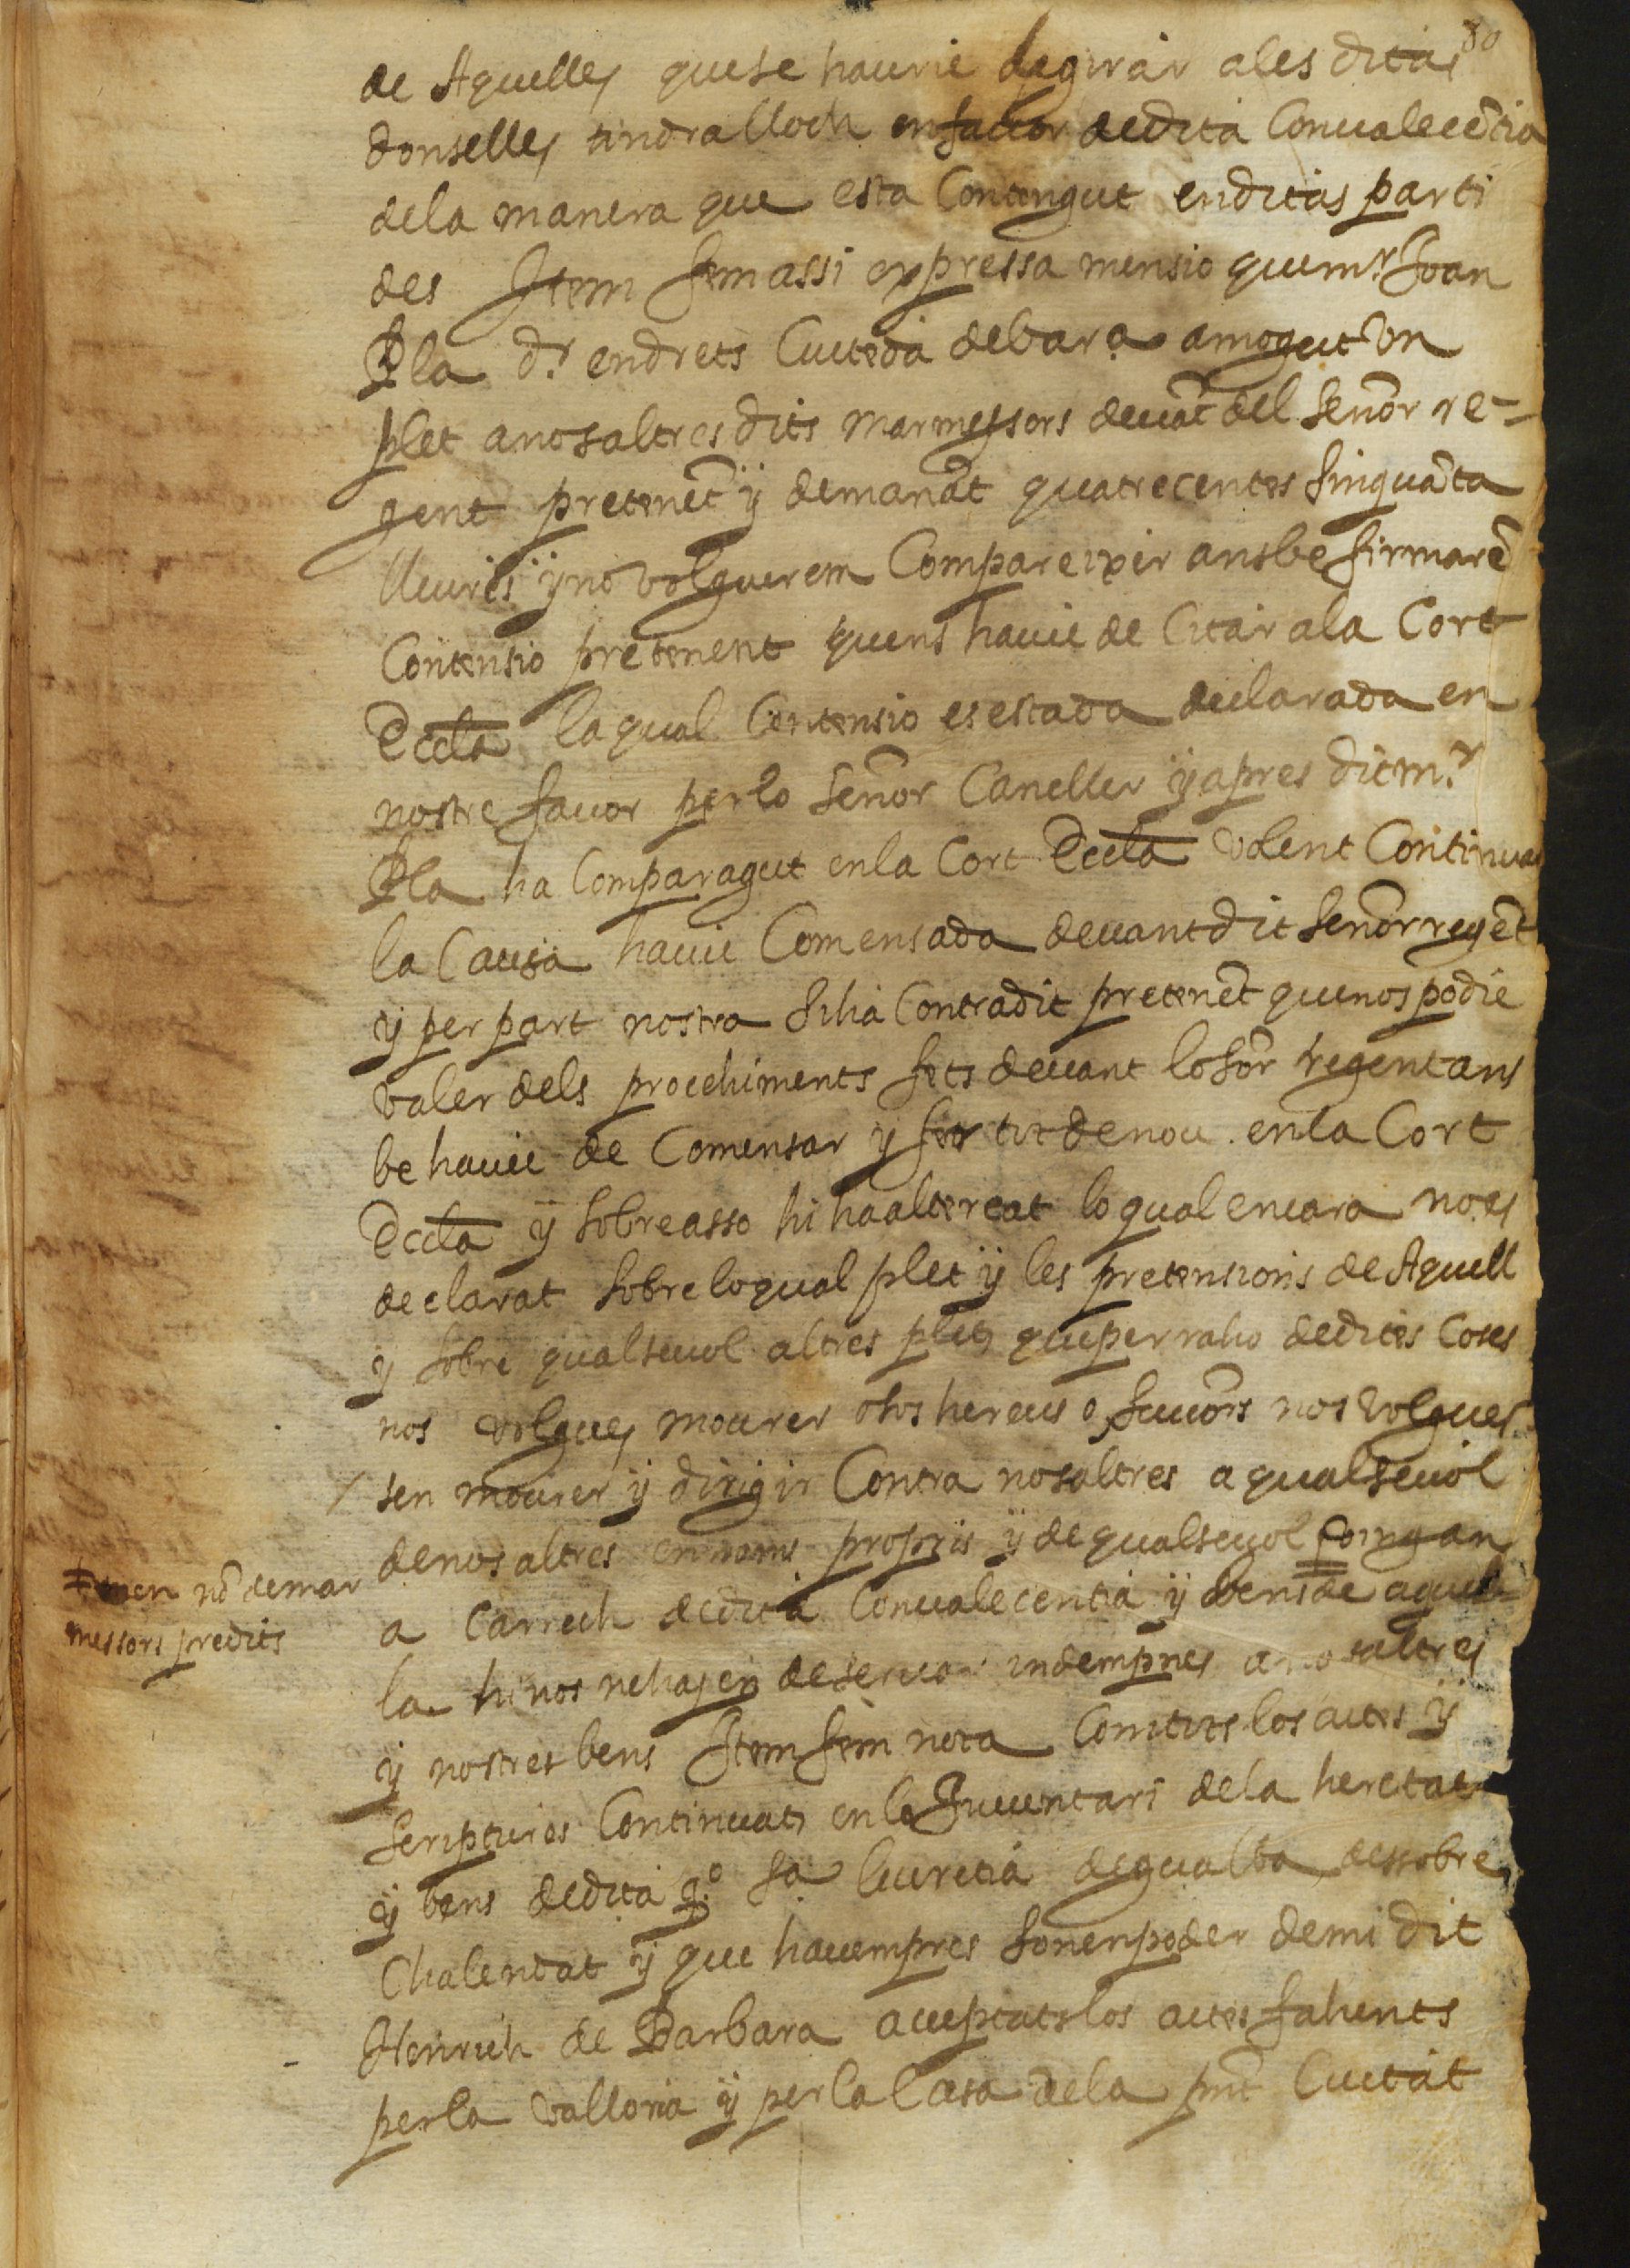 80
de Aquelles que se haurie de girar a les ditas
donselles tindra lloch en fauor de dita Conualecẽtia
de la manera que esta Contengut en ditas parti
des Item fem assi expressa mensio que mr. Joan
Pla dr. en drets Ciutedà de bar.a a mogut vn
plet a nosaltres dits marmessors deuãt del señor re=
gent pretenẽt ÿ demanãt quatrecentes sinquãta
lliures ÿ no volguerem Compareixer ans be firmarẽ
Contensio pretenent quens hauie de Citar a la Cort
Eccla la qual Contensio es estada declarada en
nostre fauor per lo señor Canseller ÿ apres dit m.r
Pla ha Comparagut en la Cort Eccla volent Continuar
la Causa hauie Comensada deuant dit señor regẽt
ÿ per part nostra si li ha Contradit pretenẽt que nos podie
valer dels procehiments fets deuant lo sõr regent ans
be hauie de Comensar ÿ fer tot de nou en la Cort
Eccla ÿ sobre asso hi ha altercat lo qual encara no es
declarat sobre lo qual plet ÿ les pretensions de Aquell
y sobre qualseuol altres plets que per raho de dites Coses
nos volgues mourer o sos hereus o succõrs nos volgues
sen mourer ÿ dirigir Contra nosaltres a qualseuol
de nosaltres en noms propris ÿ de qualseuol
en nõ de mar
messors predits
a Carrech de dita Conualecentia ÿ bens de aquel=
la hi nos ne hajen de seruar indempnes a nosaltres
ÿ nostres bens Item fem nota Com tots los actes ÿ
scriptures Continuats en lo Inuentari de la heretat
ÿ bens de dita q.o sa lucretia de gualba dessobre
Chalendat ÿ que hauem pres son en poder de mi dit
Henrich de Barbara acceptats los actes fahents
per la valloria ÿ per la Casa de la pñt Ciutat